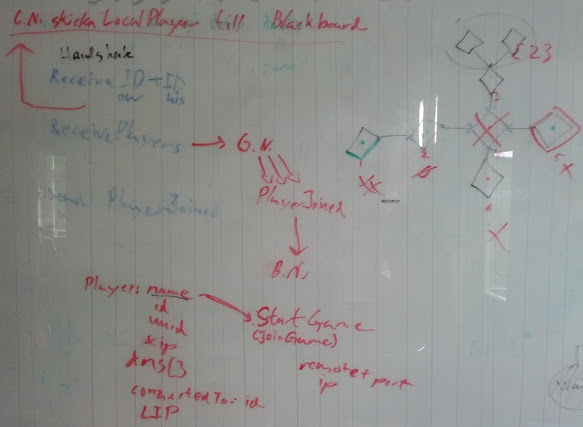 C.N. skickar LocalPlayer till Blackboard
Handshake
Receive ID + ID
our his
Receive Players
G.N.
Send PlayerJoined
PlayerJoined
B.N.
Players: name
id
unid
skip
dns[]
connectedTo: id
LIP
Start Game
(JoinGame)
remote + port
ip
23
3
1
2
6